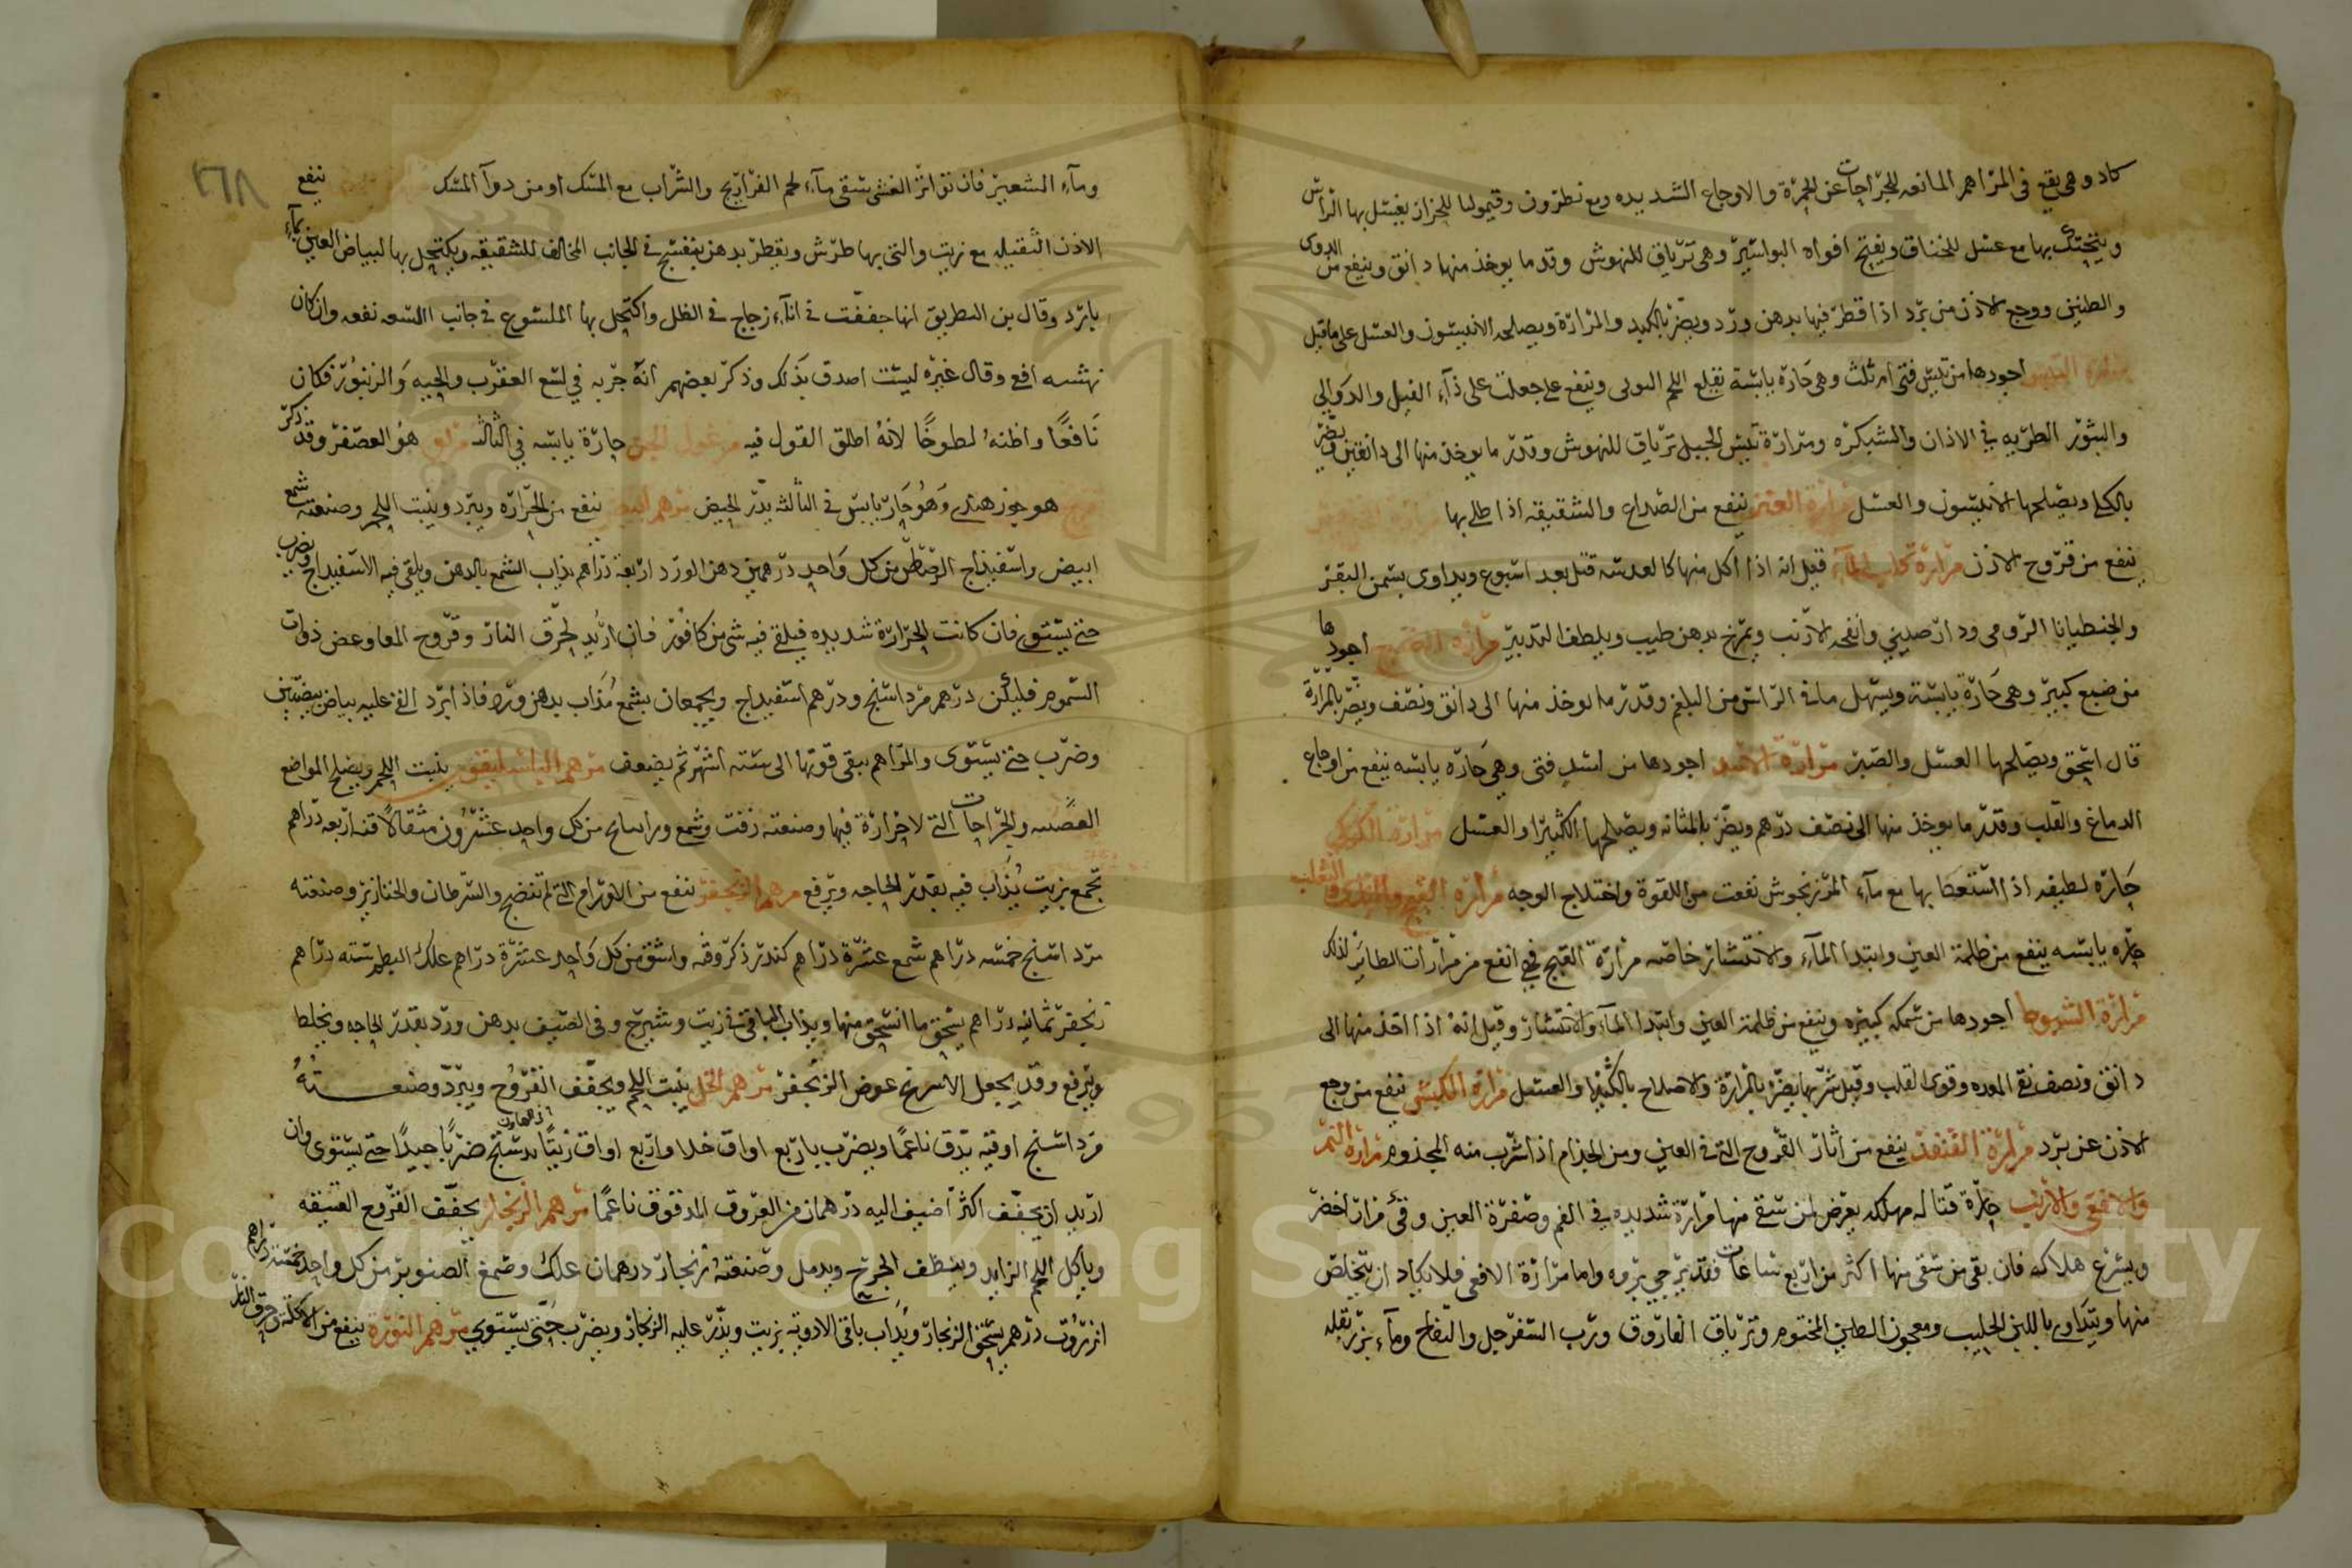 كاد وهي يقع في المراهم المانعه للجراحات عن الحمرة والاوجاع الشديده ومع نطرون وقيموليا للحزاز يغسل بها الراس
ويتحنك بها مع عسل للخناق ويفتح افواه البواسير وهي ترياق للنهوش وقدر ما يوخذ منها دانق وينفع من الدوى
والطنين ووجع الاذن من برد اذا قطر فيها بدهن ورد ويضر بالكبد والمرارة ويصلحه الانيسون والعسل على ما قيل
مرارة التيس اجودها من تيس فتى ام ثلث وهي حارة يابسة تقلع اللحم وينفع جعلت على ذآء الفيل والدوالي
والبثور الطريه في الاذان والشبكره ومرارة تيس الجبل ترياق للنهوش وقدر ما يوخذ منها الى دانقين ويضر
بالكلى ويصلحها الانيسون والعسل مرارة العنز ينفع من الصداع والشقيقه اذا طلى بها
ينفع من قروح الاذن مرارة كلب المآء قيل انه اذا اكل منها كالعدسة قتل بعد اسبوع ويداوى بسمن البقر
والجنطيانا الرومى ودارصيني وانفحه الارنب ويمرخ بدهن طيب ويلطف التدبير مرارة الضبع اجودها
من ضبع كبير وهي حارة يابسة ويسهل ما في الراس من البلغم وقدر ما يوخذ منها الى دانق ونصف ويضر بالمرارة
قال اسحق ويصلحها العسل والصبر مرارة الاسد اجودها من اسد فتى وهي حارة يابسه ينفع من اوجاع
الدماغ والقلب وقدر ما يوخذ منها الى نصف درهم ويضر بالمثانه ويصلحها الكثيرا والعسل مرارة الكركي
حارة لطيفه اذا استعط بها مع مآء المرزنجوش نفعت من اللقوة واختلاج الوجه مرارة القبج والثعلب
حارة يابسه ينفع من ظلمة العين وابتدا المآء والانتشار خاصه مرارة القبج فهي انفع من مرارات الطائر لذلك
مرارة الشبوط اجودها من سمكه كبيره وينفع من ظلمة العين وابتدا المآء والانتشار وقيل انه اذا اخذ منها الى
دانق ونصف نقى المعده وقوى القلب وقيل شربها يضر بالمرارة والاصلاح بالكثيرا والعسل مرارة الكبش ينفع من وجع
الاذن عن برد مرارة القنفذ ينفع من اثار القروح التى في العين ومن الجذام اذا شرب منه المجذوم مرارة النمر
والافعى والارنب حارة قتاله مهلكه يعرض لمن سقى منها مرارة شديده في الفم وصفرة العين وقئ مرار اخضر
ويسرع هلاكه فان بقى من سقى منها اكثر من اربع ساعات فقد يرجى بروه واما مرارة الافعى فلا يكاد ان يتخلص
منها ويتداوى باللبن الحليب ومعجون الطين المختوم وترياق الفاروق ورب السفرجل والتفاح ومآء بزر بقله
٢٦٨
ومآء الشعير فان تواتر الغشى سقى مآء لحم الفراريج والشراب مع المسك او من دوآ المسك ينفع
الاذن الثقيله مع زيت والتى بها طرش ويقطر بدهن بنفسج في الجانب المخالف للشقيقه ويكتحل بها لبياض العين بمآء
بارد وقال بن البطريق انها جففت في انآء زجاج في الظل واكتحل بها الملسوع في جانب اللسعه نفعه وان كان
نهشه افعى وقال غيره ليست اصدق بذلك وذكر بعضهم انه جربه في لسع العقرب والحيه والزنبور فكان
نافعا واظنه لطوخا لانه اطلق القول فيه حارة يابسه في الثالثه مراق هو العصفر وقد ذكر
هو جوز هندى وهو حار يابس في الثالثه يدر الحيض مرهم ابيض ينفع من الحراره ويبرد وينبت اللحم وصنعته شمع
ابيض واسفيداج الرصاص من كل واحد درهمين دهن الورد اربعه دراهم يذاب الشمع بالدهن ويلقى فيه الاسفيداج ويضرب
حتى يستوى فان كانت الحرارة شديده فيلقى فيه شى من كافور فان اريد لحرق النار وقروح المعا وعض ذوات
السموم فليكن درهم مرداسنج ودرهم اسفيداج ويجمعان بشمع مذاب بدهن ورد فاذا برد القى عليه بياض بيضتين
وضرب حتى يستوى والمراهم يبقى قوتها الى سته اشهر ثم يضعف مرهم الباسليقون ينبت اللحم ويصلح المواضع
العصبيه والجراحات التى لا حرارة فيها وصنعته زفت وشمع وراسانج من كل واحد عشرون مثقالا قنه اربعه دراهم
تجمع بزيت يذاب فيه بقدر الحاجه ويرفع مرهم الزنجفر ينفع من الاورام التى لم تنضج والسرطان والخنازير وصنعته
مرداسنج خمسه دراهم شمع عشرة دراهم كندر ذكر وقنه واشق من كل واحد عشرة دراهم علك البطم سته دراهم
زنجفر ثمانيه دراهم يسحق ما انسحق منها ويذاب الباقى في زيت وشيرج وفى الصيف بدهن ورد بقدر الحاجه ويخلط
ويرفع وقد يجعل الاسرنج عوض الزنجفر مرهم الخل ينبت اللحم ويجفف القروح ويبرد وصنعته
مرداسنج اوقيه يدق ناعما ويضرب باربع اواق خلا واربع اواق زيتا بدستج في الهاون ضربا جيدا حتى يستوى وان
اريد ان يجفف اكثر اضيف اليه درهمان من العروق المدقوق ناعما مرهم الزنجار يجفف القروح العتيقه
وياكل اللحم الزايد وينظف الجرح ويدمل وصنعته زنجار درهمان علك وصمغ الصنوبر من كل واحد خمسه دراهم
انزروت درهم يسحق الزنجار ويذاب باقى الادويه بزيت ويذر عليه الزنجار ويضرب حتى يستوى مرهم النورة ينفع من الاكله وحرق النار
Copyright © King Saud University
1957